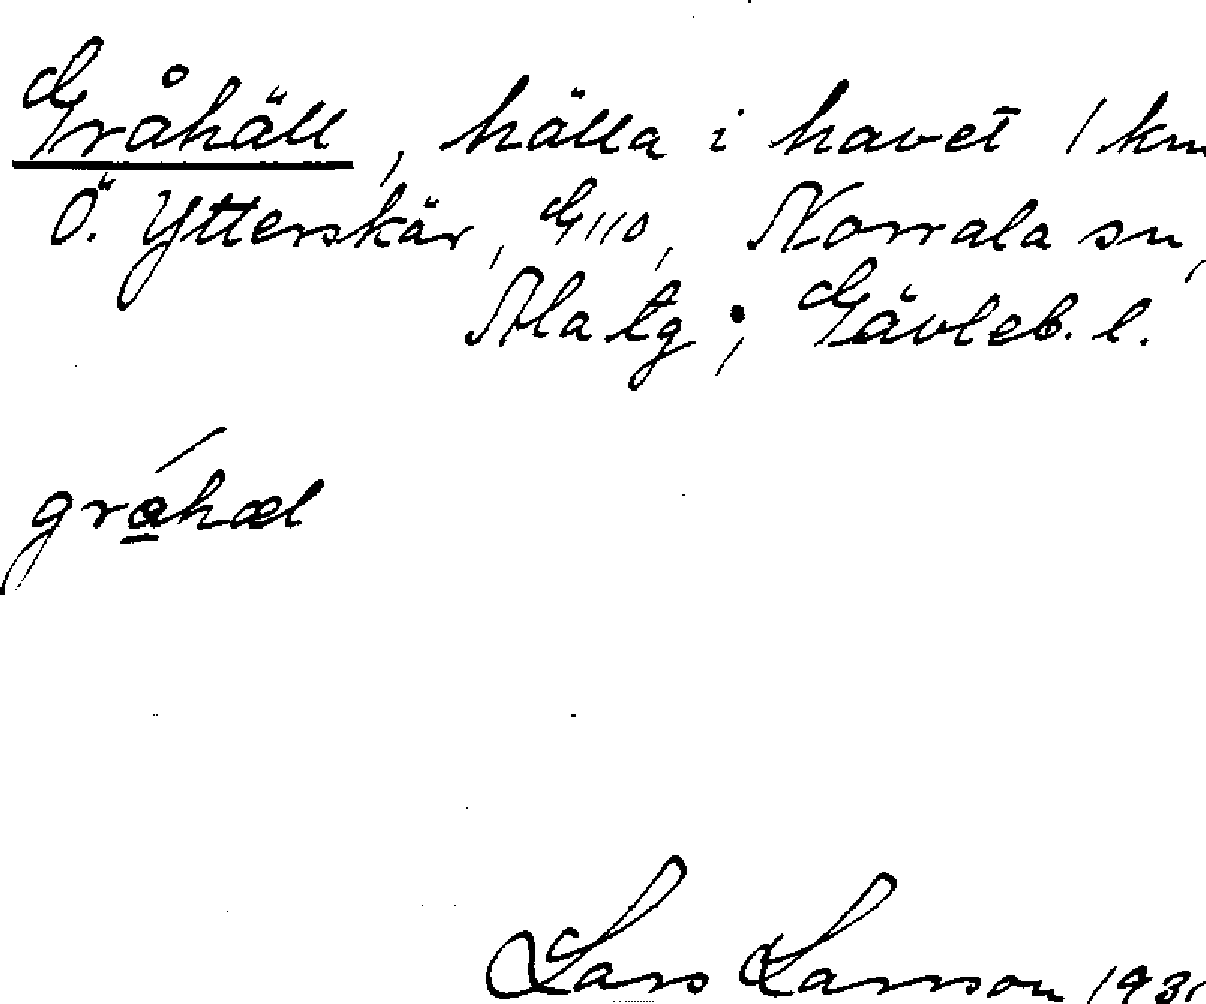 Gråhäll, hälla i havet 1 km
Ö. Ytterskär, G110, Norrala sn,
Ala tg; Gävleb. l.
gråhæl
Lars Larsson